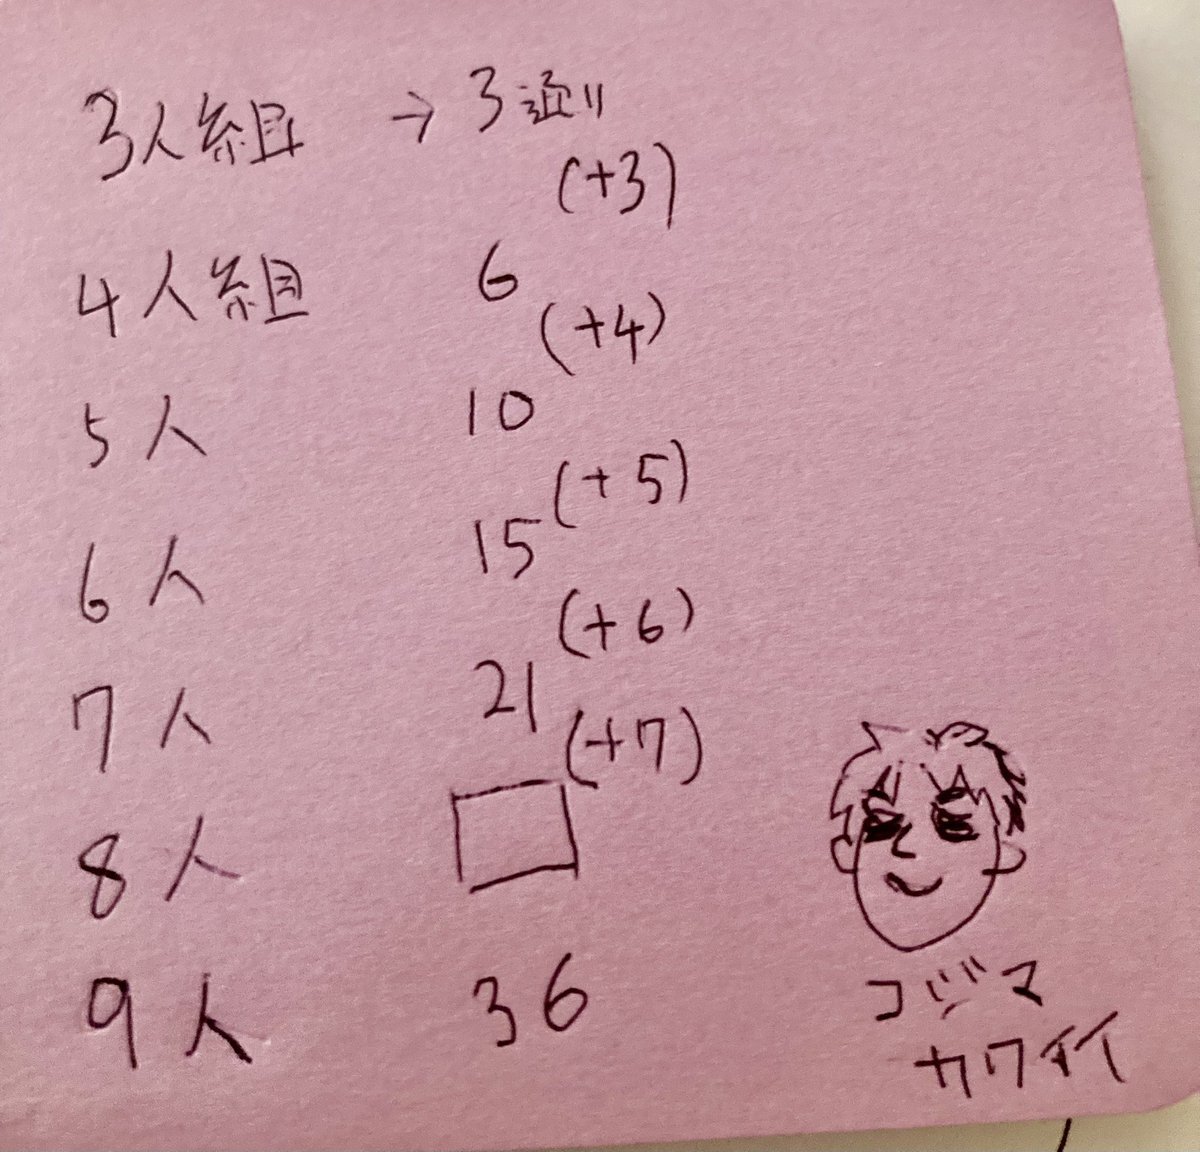 3人組 → 3通り
(+3)
4人組 6
(+4)
5人 10
(+5)
6人 15
(+6)
7人 21
(+7)
8人
9人 36
コジマ
カワイイ